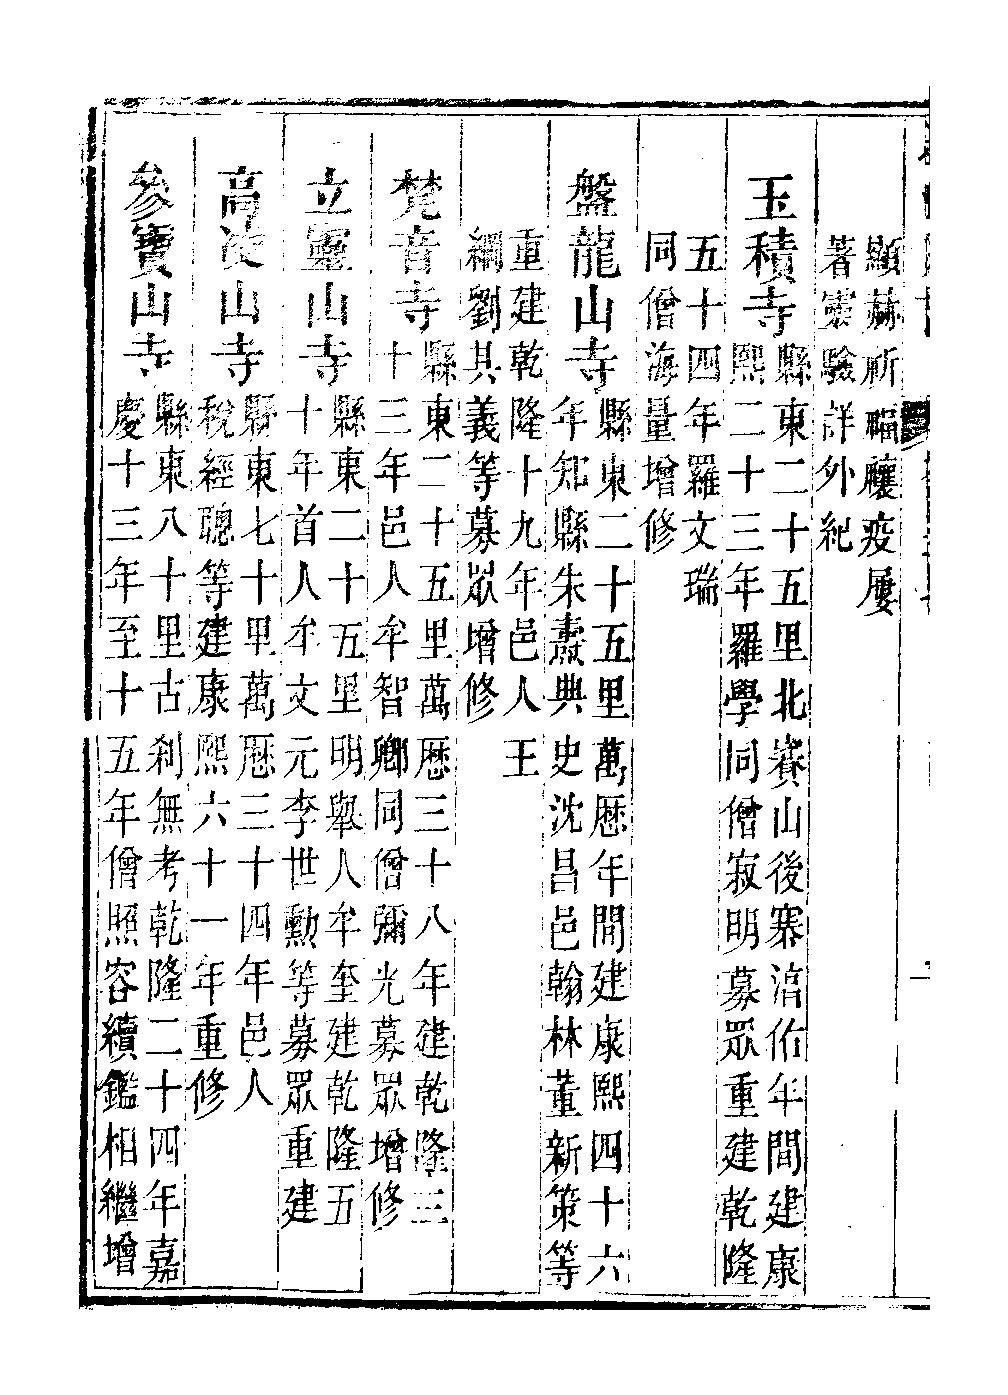 顯赫祈福禳疫屢
著驗詳外紀
玉積寺縣東二十五里北賽山後寨湻佑年間建康
熙二十三年羅學同僧寂明募眾重建乾隆
五十四年羅文瑞
同僧海量增修
盤龍山寺縣東二十五里萬厯年間建康熙四十六
年知縣朱燾典史沈昌邑翰林董新策等
重建乾隆十九年邑人王
綱劉其義等募眾增修
梵音寺縣東二十五里萬厯三十八年建乾隆三
十三年邑人牟智卿同僧彌光募眾增修
立靈山寺縣東二十五里明舉人牟奎建乾隆五
十年首人牟文元李世勳等募眾重建
高凌山寺縣東七十里萬厯三十四年邑人
稅經聰等建康熙六十一年重修
參寶山寺縣東八十里古刹無考乾隆二十四年嘉
慶十三年至十五年僧照容續鑑相繼增